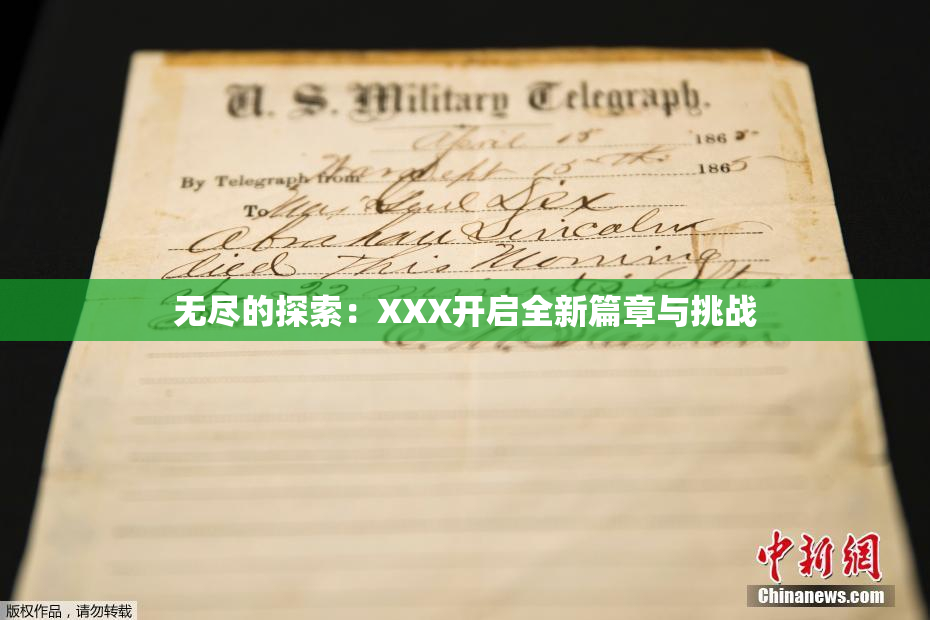 U. S. Military Telegraph.
April 15 1865
By Telegraph from War Dept 15th 1865
To Maj Genl Dix
Abraham Lincoln
died This Morning
22 minutes after
无尽的探索：XXX开启全新篇章与挑战
中新网
Chinanews.com
版权作品，请勿转载